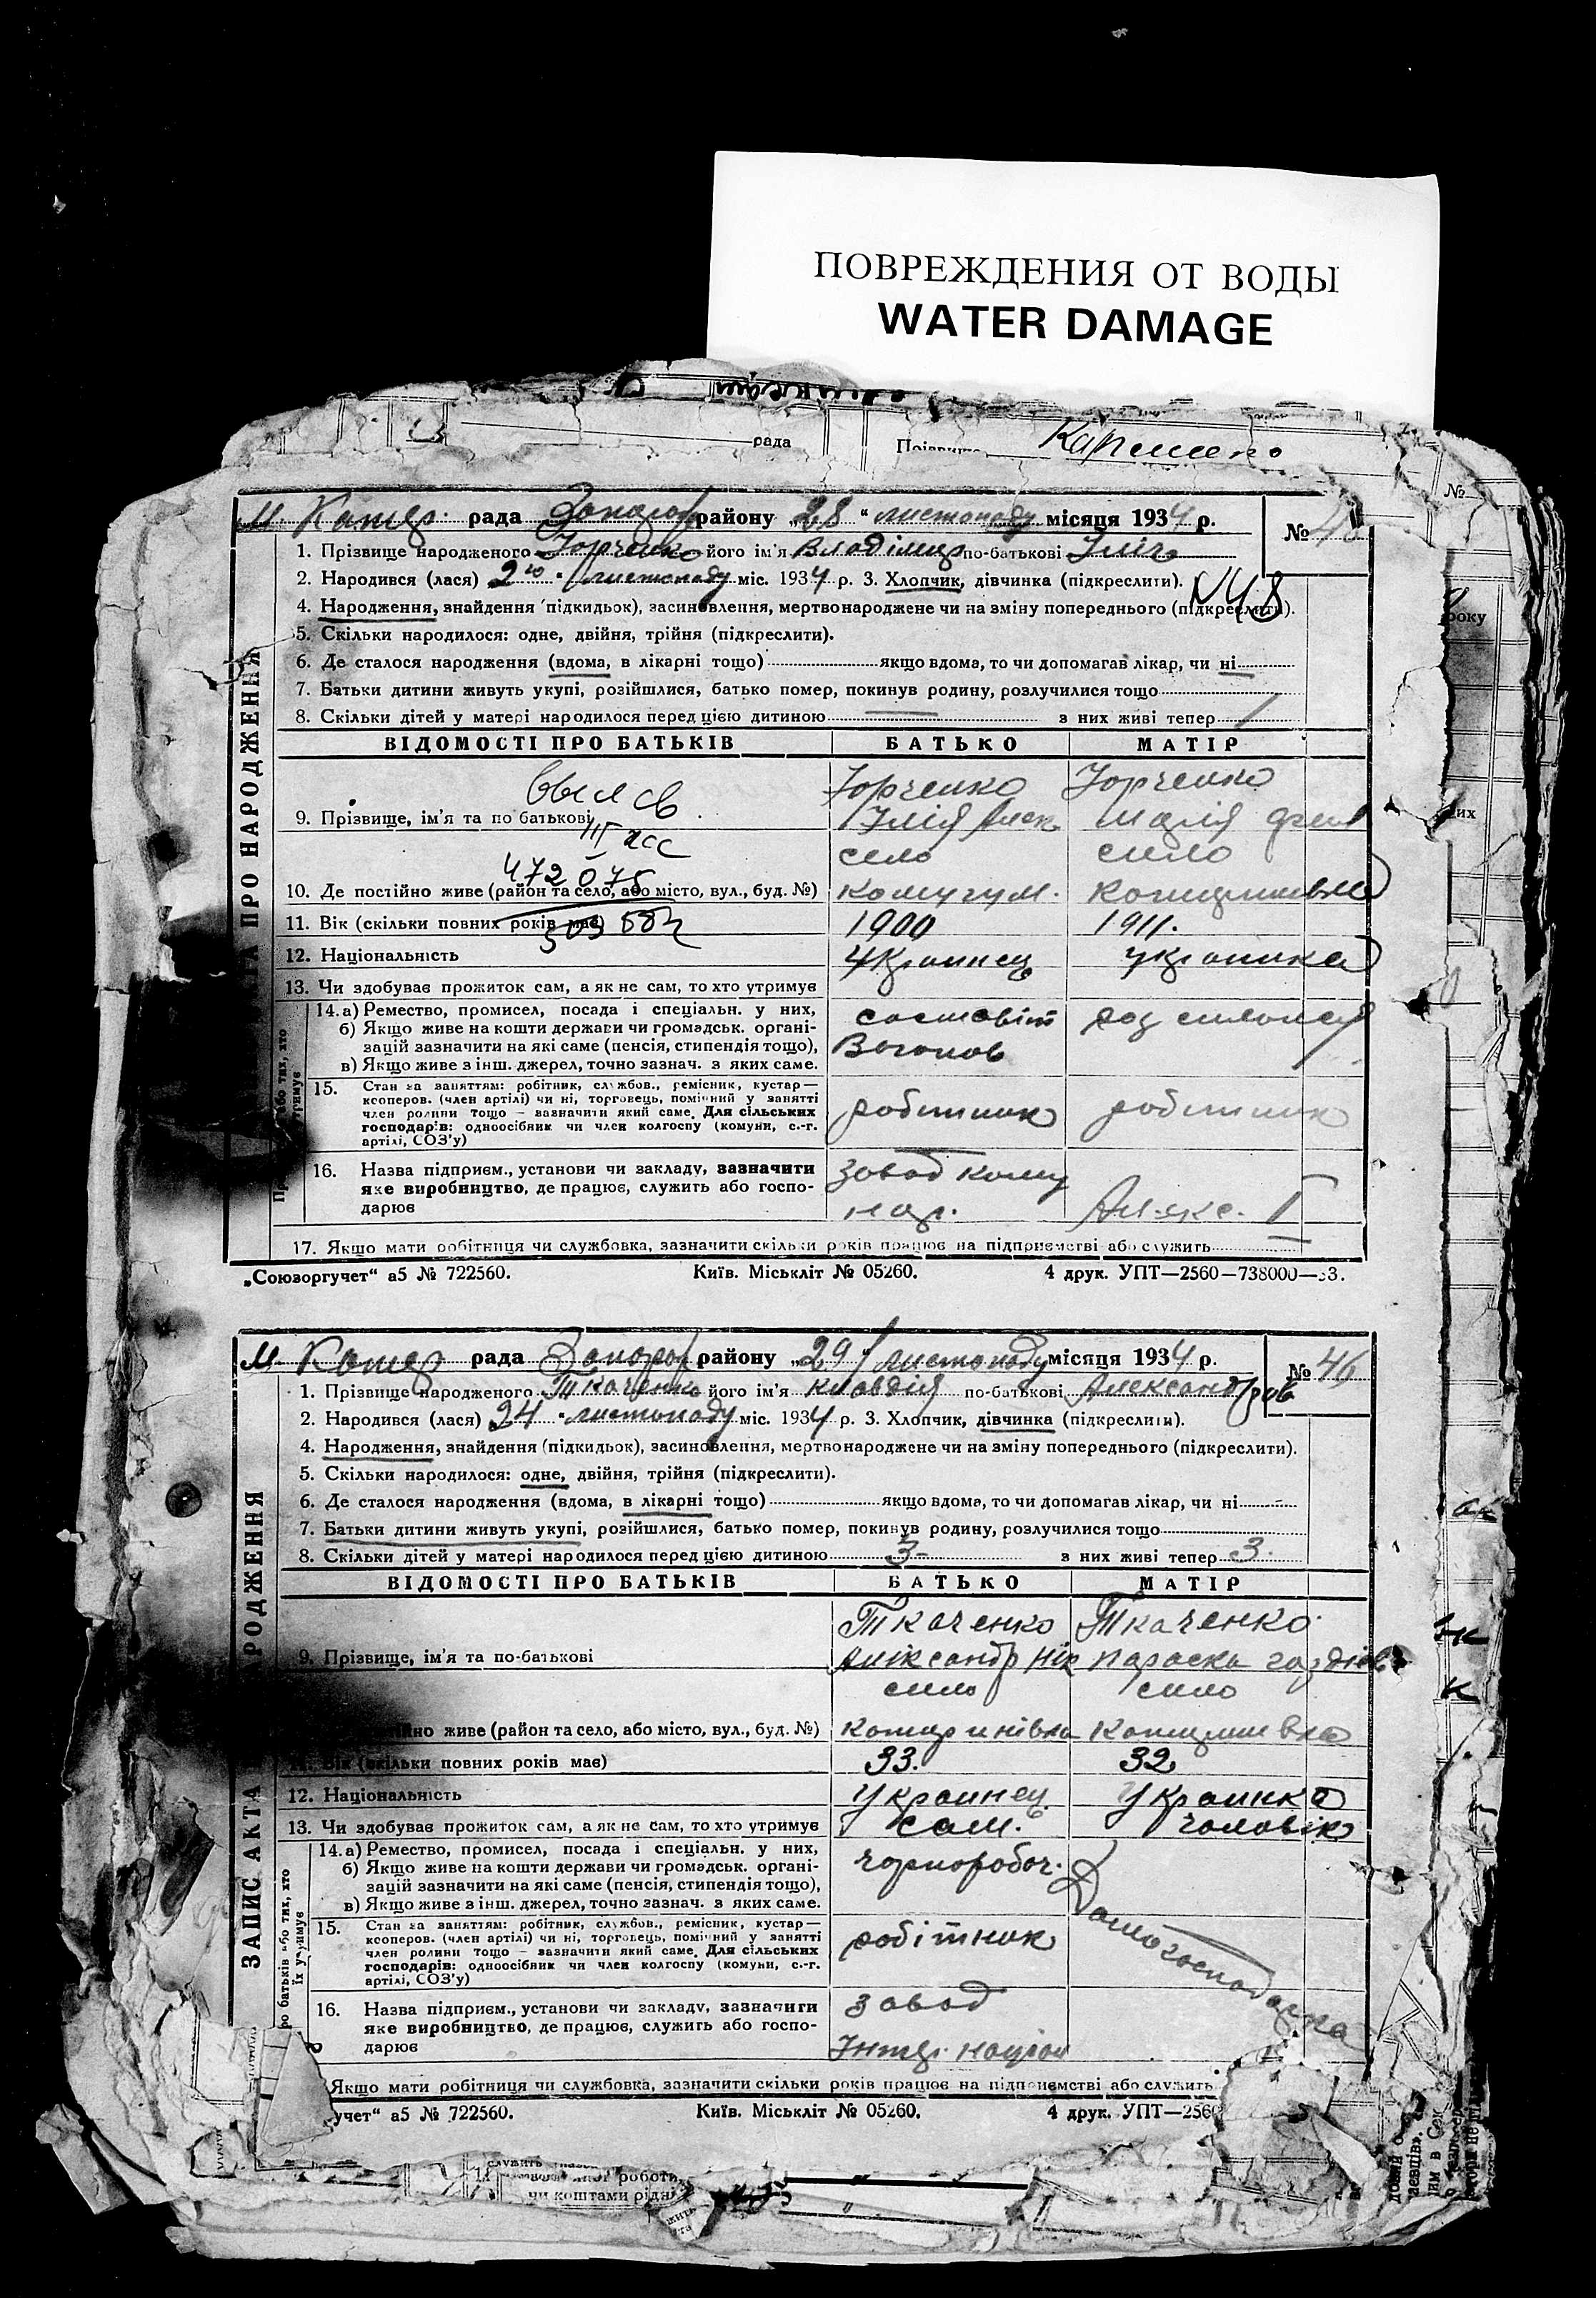 ПОВРЕЖДЕНИЯ ОТ ВОДЫ
WATER DAMAGE
рада
м. рада району „28“ листопаду місяця 1934 р.
№
1. Прізвище народженого його ім'я Владімир по-батькові Ілліч
2. Народився (лася) листопаду міс. 1934 р. 3. Хлопчик, дівчинка (підкреслити).
N48
4. Народження, знайдення (підкидьок), засиновлення, мертвонароджене чи на зміну попереднього (підкреслити).
5. Скільки народилося: одне, двійня, трійня (підкреслити).
6. Де сталося народження (вдома, в лікарні тощо) якщо вдома, то чи допомагав лікар, чи ні
7. Батьки дитини живуть укупі, розійшлися, батько помер, покинув родину, розлучилися тощо
8. Скільки дітей у матері народилося перед цією дитиною — з них живі тепер /
ВІДОМОСТІ ПРО БАТЬКІВ БАТЬКО МАТІР
9. Прізвище, ім'я та по батькові
село село
10. Де постійно живе (район та село, або місто, вул., буд. №)
472075
11. Вік (скільки повних років має) 1900 1911.
12. Національність Украинец украинка
13. Чи здобуває прожиток сам, а як не сам, то хто утримує
14. а) Ремество, промисел, посада і спеціальн. у них,
б) Якщо живе на кошти держави чи громадськ. органі-
зацій зазначити на які саме (пенсія, стипендія тощо),
в) Якщо живе з інш. джерел, точно зазнач. з яких саме.
Вагонов
15. Стан за заняттям: робітник, службов., ремісник, кустар—
кооперов. (член артілі) чи ні, торговець, помічний у занятті
член родини тощо — зазначити який саме. Для сільських
господарів: одноосібник чи член колгоспу (комуни, с.-г.
артілі, СОЗ'у)
робітник робітник
16. Назва підприєм., установи чи закладу, зазначити
яке виробництво, де працює, служить або госпо-
дарює
завод
17. Якщо мати робітниця чи службовка, зазначити скільки років працює на підприємстві або служить
„Союзоргучет“ а5 № 722560. Київ. Міськліт № 05260. 4 друк. УПТ—2560—738000—33.
м. рада району „29“ листопаду місяця 1934 р.
№ 46
1. Прізвище народженого Ткаченко його ім'я Клавдія по-батькові Александров
2. Народився (лася) 24 листопаду міс. 1934 р. 3. Хлопчик, дівчинка (підкреслити).
4. Народження, знайдення (підкидьок), засиновлення, мертвонароджене чи на зміну попереднього (підкреслити).
5. Скільки народилося: одне, двійня, трійня (підкреслити).
6. Де сталося народження (вдома, в лікарні тощо) якщо вдома, то чи допомагав лікар, чи ні
7. Батьки дитини живуть укупі, розійшлися, батько помер, покинув родину, розлучилися тощо
8. Скільки дітей у матері народилося перед цією дитиною 3- з них живі тепер 3.
ВІДОМОСТІ ПРО БАТЬКІВ БАТЬКО МАТІР
Ткаченко Ткаченко
9. Прізвище, ім'я та по-батькові Аліксандр Нік Параска
село село
живе (район та село, або місто, вул., буд. №)
Вік (скільки повних років має) 33. 32
12. Національність Украинец Украинка
13. Чи здобуває прожиток сам, а як не сам, то хто утримує сам. чоловік
14. а) Ремество, промисел, посада і спеціальн. у них,
б) Якщо живе на кошти держави чи громадськ. органі-
зацій зазначити на які саме (пенсія, стипендія тощо),
в) Якщо живе з інш. джерел, точно зазнач. з яких саме.
чорноробоч. Домогосподарка
15. Стан за заняттям: робітник, службов., ремісник, кустар—
кооперов. (член артілі) чи ні, торговець, помічний у занятті
член родини тощо — зазначити який саме. Для сільських
господарів: одноосібник чи член колгоспу (комуни, с.-г.
артілі, СОЗ'у)
робітник
16. Назва підприєм., установи чи закладу, зазначити
яке виробництво, де працює, служить або госпо-
дарює
завод
Якщо мати робітниця чи службовка, зазначити скільки років працює на підприємстві або служить
учет“ а5 № 722560. Київ. Міськліт № 05260. 4 друк. УПТ—256
роботи
чи коштами рідн
ЗАПИС АКТА